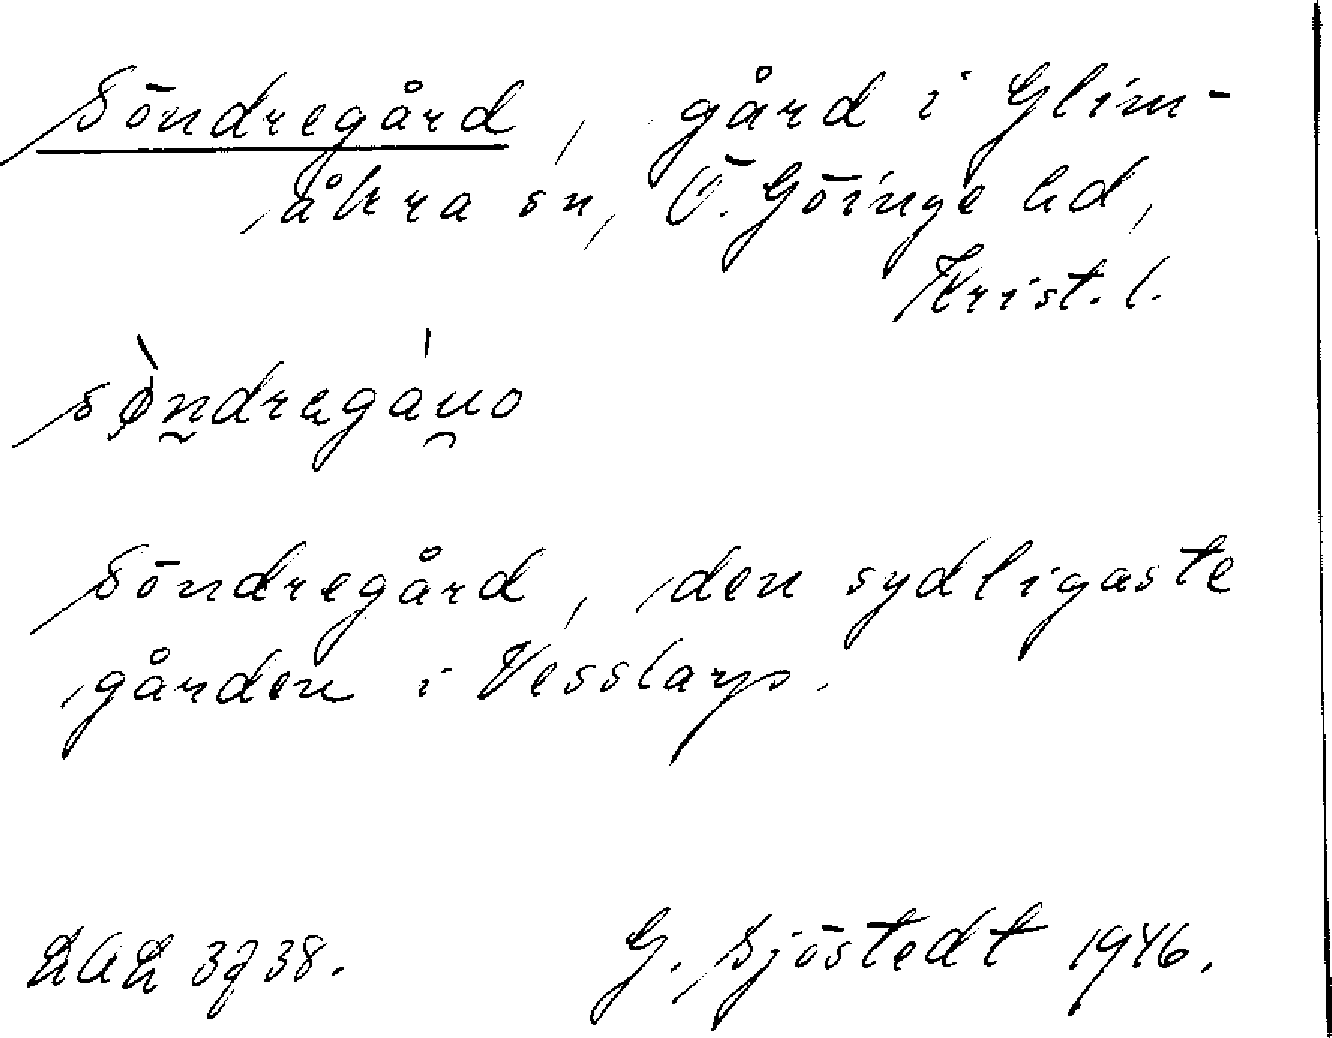 Söndregård, gård i Glim-
åkra sn, Ö. Göinge hd,
Krist. l.
Söndregård, den sydligaste
gården i Vesslarp.
LAL 3738. G. Sjöstedt 1946.